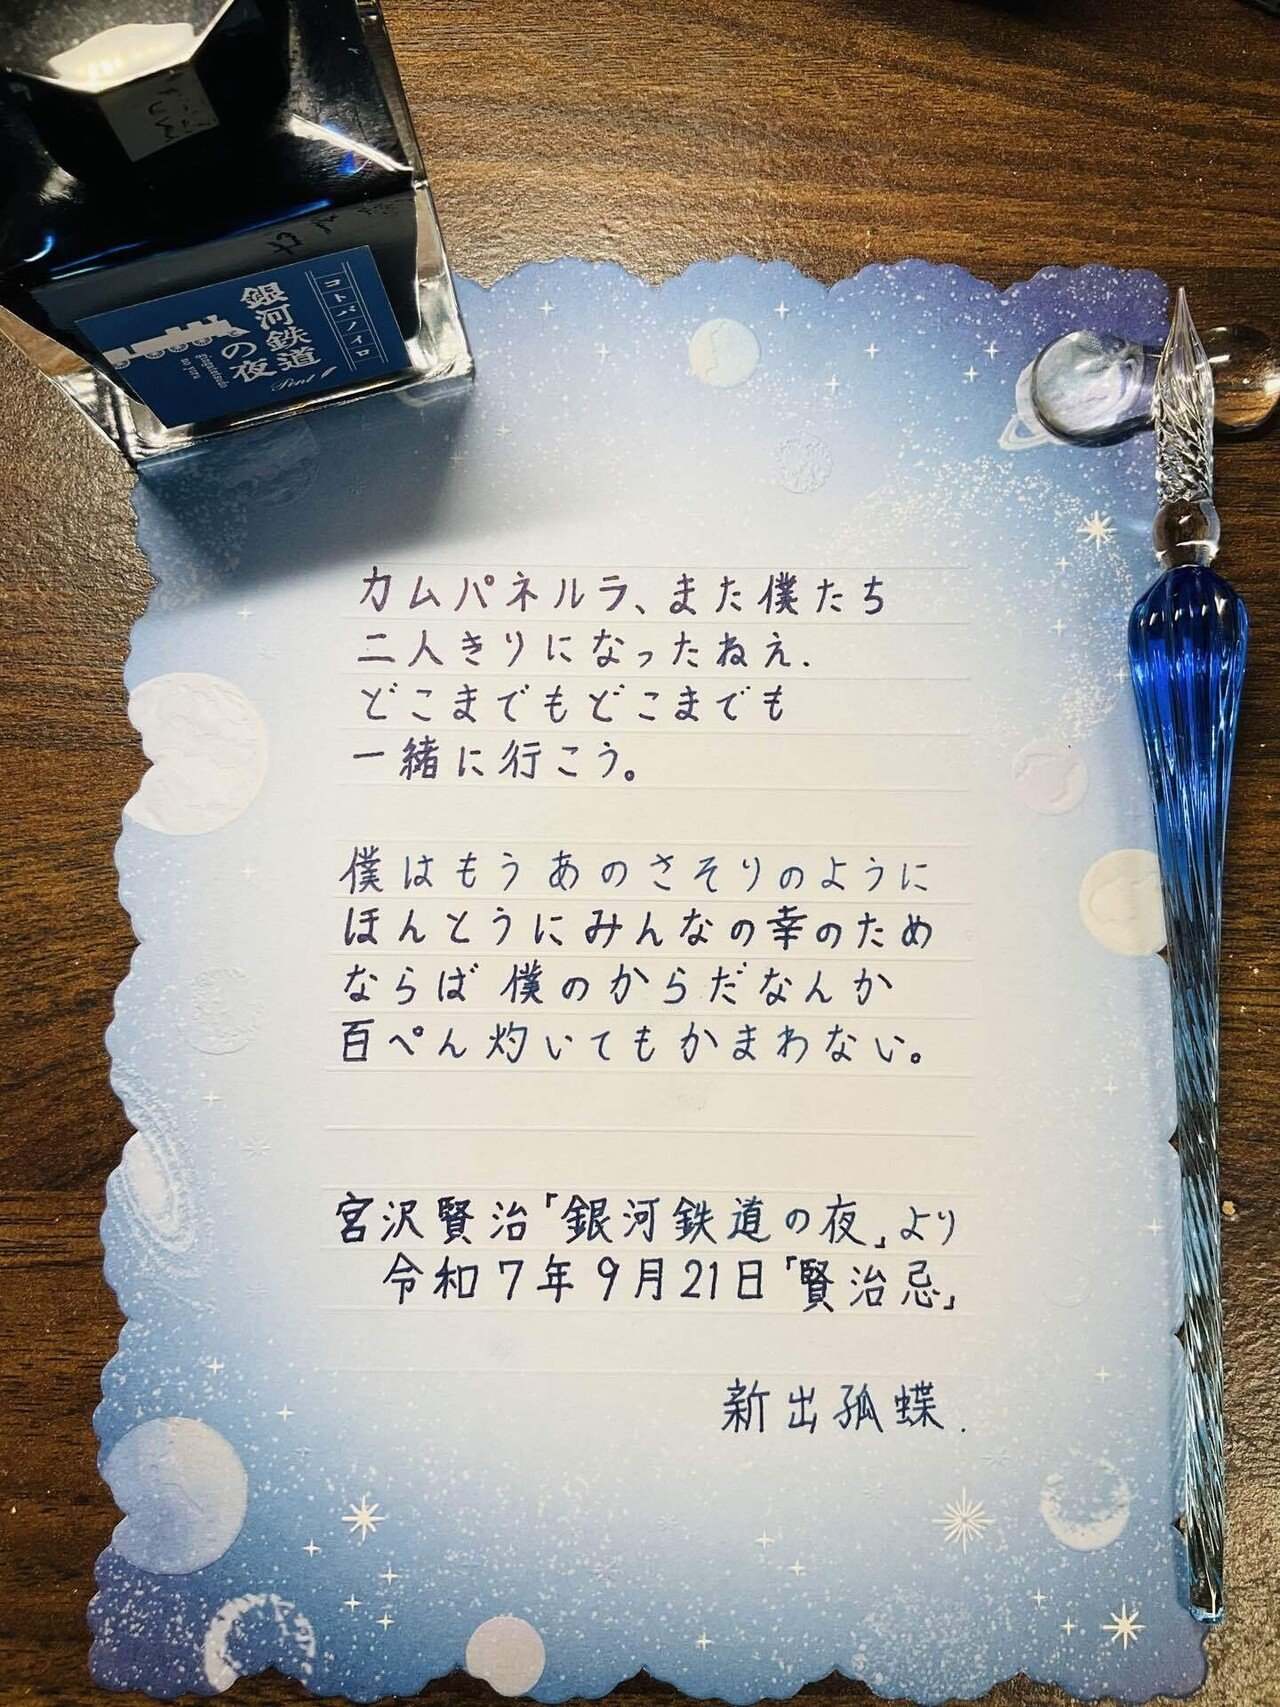 コトバノイロ
銀河鉄道
の夜
ginga tetsudo
no yoru
カムパネルラ、また僕たち
二人きりになったねえ.
どこまでもどこまでも
一緒に行こう。
僕はもうあのさそりのように
ほんとうにみんなの幸のため
ならば僕のからだなんか
百ぺん灼いてもかまわない。
宮沢賢治「銀河鉄道の夜」より
令和7年9月21日「賢治忌」
新出孤蝶.